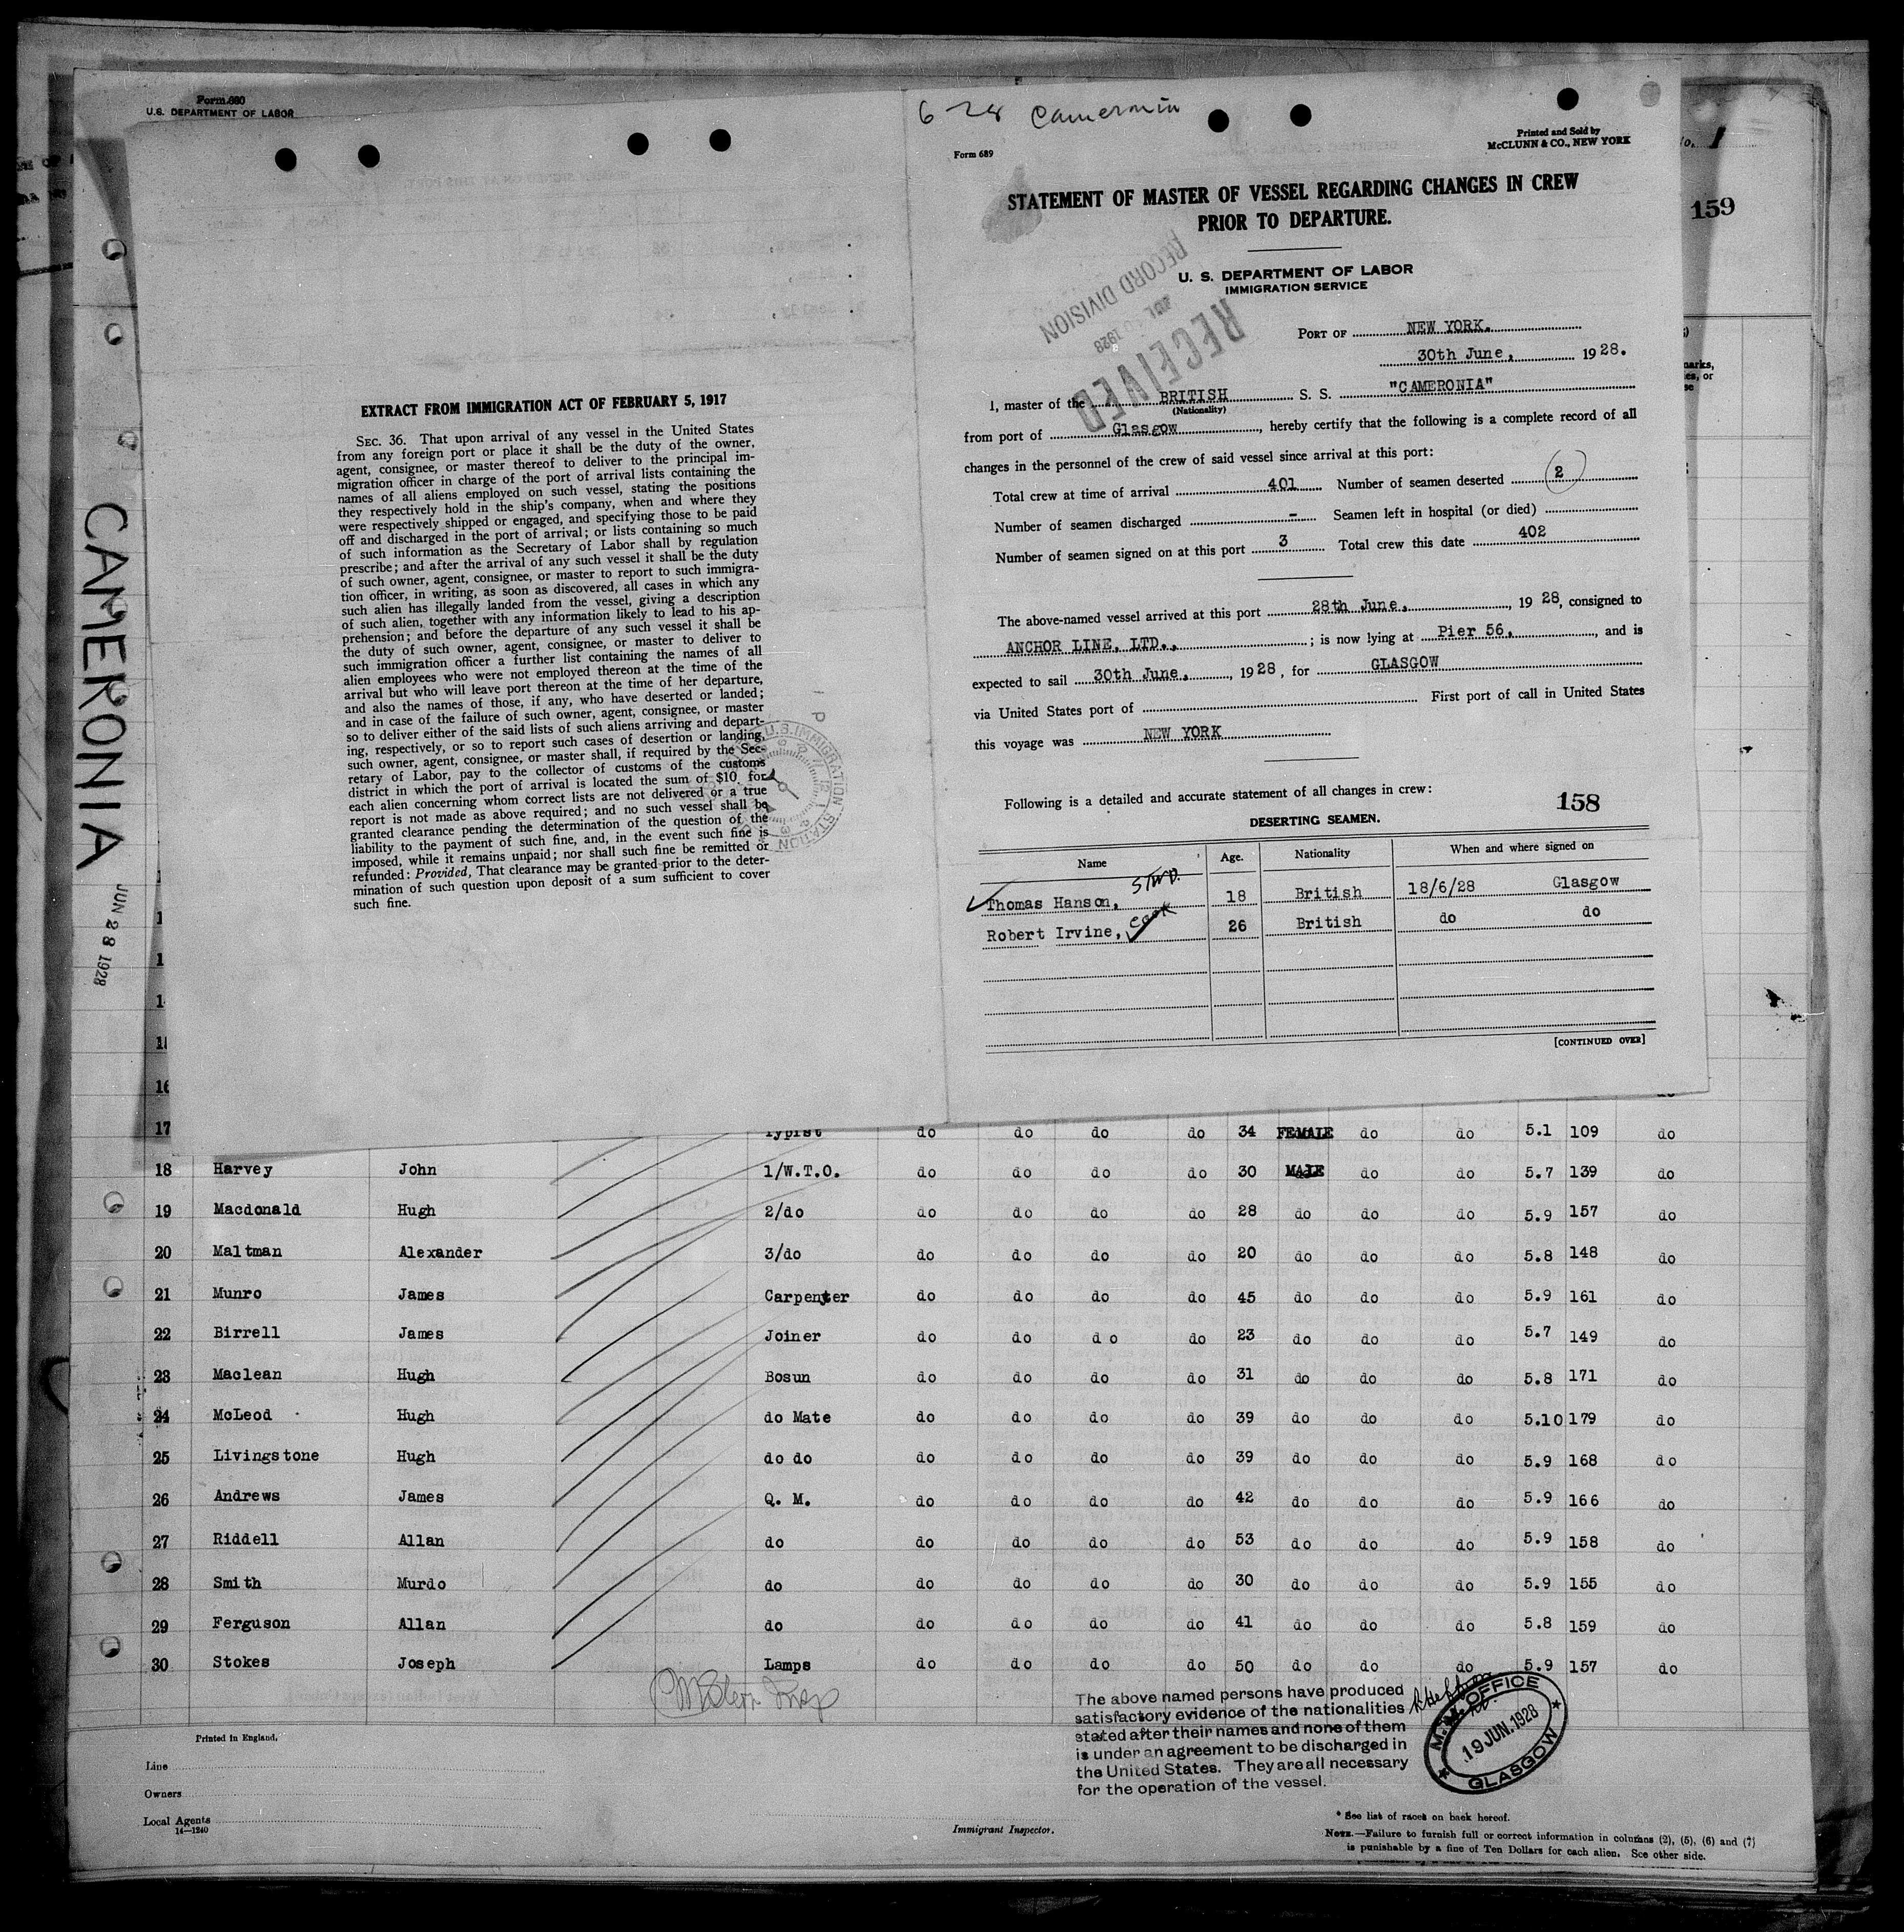 Form 680
U.S. DEPARTMENT OF LABOR
6-28 Cameronia
Form 689
Printed and Sold by
McCLUNN & CO., NEW YORK
No. 1
159
STATEMENT OF MASTER OF VESSEL REGARDING CHANGES IN CREW
PRIOR TO DEPARTURE.
U. S. DEPARTMENT OF LABOR
IMMIGRATION SERVICE
RECORD DIVISION
1928
RECEIVED
PORT OF NEW YORK.
30th June, 1928.
I, master of the BRITISH S. S. "CAMERONIA"
(Nationality)
from port of Glasgow, hereby certify that the following is a complete record of all
changes in the personnel of the crew of said vessel since arrival at this port:
Total crew at time of arrival 401 Number of seamen deserted 2
Number of seamen discharged - Seamen left in hospital (or died)
Number of seamen signed on at this port 3 Total crew this date 402
The above-named vessel arrived at this port 28th June, 1928, consigned to
ANCHOR LINE, LTD., ; is now lying at Pier 56, and is
expected to sail 30th June, 1928, for GLASGOW
via United States port of First port of call in United States
this voyage was NEW YORK
Following is a detailed and accurate statement of all changes in crew:
158
DESERTING SEAMEN.
Name Age. Nationality When and where signed on
Thomas Hanson, STWD. 18 British 18/6/28 Glasgow
Robert Irvine, Cook 26 British do do
[CONTINUED OVER]
EXTRACT FROM IMMIGRATION ACT OF FEBRUARY 5, 1917
SEC. 36. That upon arrival of any vessel in the United States
from any foreign port or place it shall be the duty of the owner,
agent, consignee, or master thereof to deliver to the principal im-
migration officer in charge of the port of arrival lists containing the
names of all aliens employed on such vessel, stating the positions
they respectively hold in the ship's company, when and where they
were respectively shipped or engaged, and specifying those to be paid
off and discharged in the port of arrival; or lists containing so much
of such information as the Secretary of Labor shall by regulation
prescribe; and after the arrival of any such vessel it shall be the duty
of such owner, agent, consignee, or master to report to such immigra-
tion officer, in writing, as soon as discovered, all cases in which any
such alien has illegally landed from the vessel, giving a description
of such alien, together with any information likely to lead to his ap-
prehension; and before the departure of any such vessel it shall be
the duty of such owner, agent, consignee, or master to deliver to
such immigration officer a further list containing the names of all
alien employees who were not employed thereon at the time of the
arrival but who will leave port thereon at the time of her departure,
and also the names of those, if any, who have deserted or landed;
and in case of the failure of such owner, agent, consignee, or master
so to deliver either of the said lists of such aliens arriving and depart-
ing, respectively, or so to report such cases of desertion or landing,
such owner, agent, consignee, or master shall, if required by the Sec-
retary of Labor, pay to the collector of customs of the customs
district in which the port of arrival is located the sum of $10 for
each alien concerning whom correct lists are not delivered or a true
report is not made as above required; and no such vessel shall be
granted clearance pending the determination of the question of the
liability to the payment of such fine, and, in the event such fine is
imposed, while it remains unpaid; nor shall such fine be remitted or
refunded: Provided, That clearance may be granted prior to the deter-
mination of such question upon deposit of a sum sufficient to cover
such fine.
U.S. IMMIGRATION STATION
CAMERONIA
JUN 28 1928
16
17 Typist do do do do 34 FEMALE do do 5.1 109 do
18 Harvey John 1/W.T.O. do do do do 30 MALE do do 5.7 139 do
19 Macdonald Hugh 2/do do do do do 28 do do do 5.9 157 do
20 Maltman Alexander 3/do do do do do 20 do do do 5.8 148 do
21 Munro James Carpenter do do do do 45 do do do 5.9 161 do
22 Birrell James Joiner do do do do 23 do do do 5.7 149 do
23 Maclean Hugh Bosun do do do do 31 do do do 5.8 171 do
24 McLeod Hugh do Mate do do do do 39 do do do 5.10 179 do
25 Livingstone Hugh do do do do do do 39 do do do 5.9 168 do
26 Andrews James Q. M. do do do do 42 do do do 5.9 166 do
27 Riddell Allan do do do do do 53 do do do 5.9 158 do
28 Smith Murdo do do do do do 30 do do do 5.9 155 do
29 Ferguson Allan do do do do do 41 do do do 5.8 159 do
30 Stokes Joseph Lamps do do do do 50 do do do 5.9 157 do
The above named persons have produced
satisfactory evidence of the nationalities
stated after their names and none of them
is under an agreement to be discharged in
the United States. They are all necessary
for the operation of the vessel.
M.M. OFFICE
19 JUN. 1928
GLASGOW
Printed in England.
Line
Owners
Local Agents
14—1240
Immigrant Inspector.
* See list of races on back hereof.
NOTE.—Failure to furnish full or correct information in columns (2), (5), (6) and (7)
is punishable by a fine of Ten Dollars for each alien. See other side.